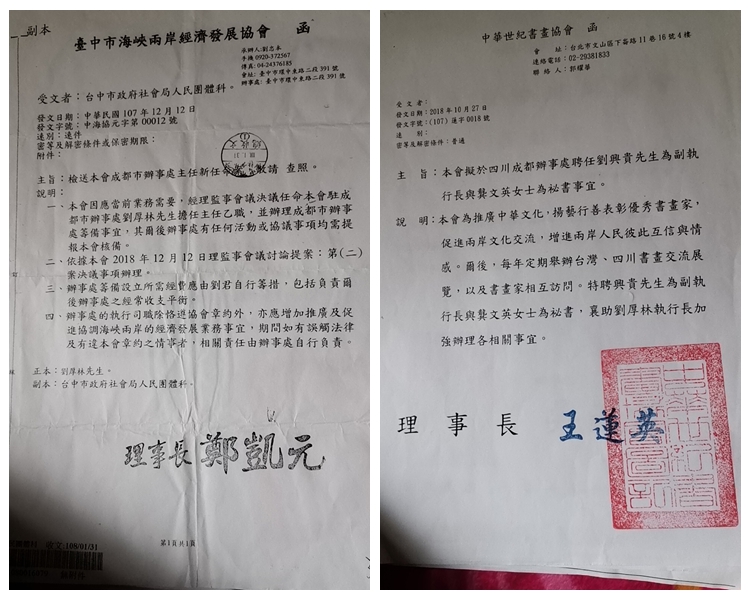 副本
臺中市海峽兩岸經濟發展協會 函
承辦人:劉忠本
手機 0920-372567
傳真: 04-24376185
會址: 臺中市環中東路二段 391 號
辦事處: 臺中市環中東路二段 391 號
受文者:台中市政府社會局人民團體科。
發文日期:中華民國 107 年 12 月 12 日
發文字號:中海協元字第 00012 號
速別:速件
密等及解密條件或保密期限:
附件:
主旨:檢送本會成都市辦事處主任新任 敬請 查照。
說明:
一、本會因應當前業務需要,經理監事會議決議任命本會駐成
都市辦事處劉厚林先生擔任主任乙職,並辦理成都市辦事
處籌備事宜,其爾後辦事處有任何活動或協議事項均需提
報本會核備。
二、依據本會 2018 年 12 月 12 日理監事會議討論提案:第(二)
案決議事項辦理。
三、辦事處籌備設立所需經費應由劉君自行籌措,包括負責爾
後辦事處之經常收支平衡。
四、辦事處的執行司職除恪遵協會章約外,亦應增加推廣及促
進協調海峽兩岸的經濟發展業務事宜,期間如有誤觸法律
及有違本會章約之情事者,相關責任由辦事處自行負責。
正本:劉厚林先生。
副本:台中市政府社會局人民團體科。
理事長 鄭凱元
收文:108/01/31
第1頁共1頁
中華世紀書畫協會 函
會 址:台北市文山區下崙路 11 巷 16 號 4 樓
連絡電話:02-29381833
聯 絡 人:郭耀華
受 文 者:
發文日期:2018 年 10 月 27 日
發文字號:(107) 蓮字 0018 號
速 別:
密等及解密條件:普通
主 旨:本會擬於四川成都辦事處聘任劉興貴先生為副執
行長與龔文英女士為祕書事宜。
說 明:本會為推廣中華文化,揚藝行善表彰優秀書畫家,
促進兩岸文化交流,增進兩岸人民彼此互信與情
感。爾後,每年定期舉辦台灣、四川書畫交流展
覽,以及書畫家相互訪問。特聘興貴先生為副執
行長與龔文英女士為祕書,襄助劉厚林執行長加
強辦理各相關事宜。
理 事 長 王蓮英